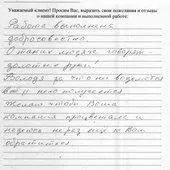 Уважаемый клиент! Просим Вас, выразить свои пожелания и отзывы
о нашей компании и выполненной работе:
Работа выполнена
добросовестно.
О таких людях говорят -
золотые руки!
Володя за что ни возьмется
всё у него получается
Желаю чтобы Ваша
компания процветала и
надеюсь не раз еще к Вам
обратиться